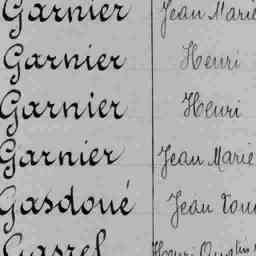 Garnier Jean Marie
Garnier Henri
Garnier Henri
Garnier Jean Marie
Gasdoué Jean
Gasrel Henri